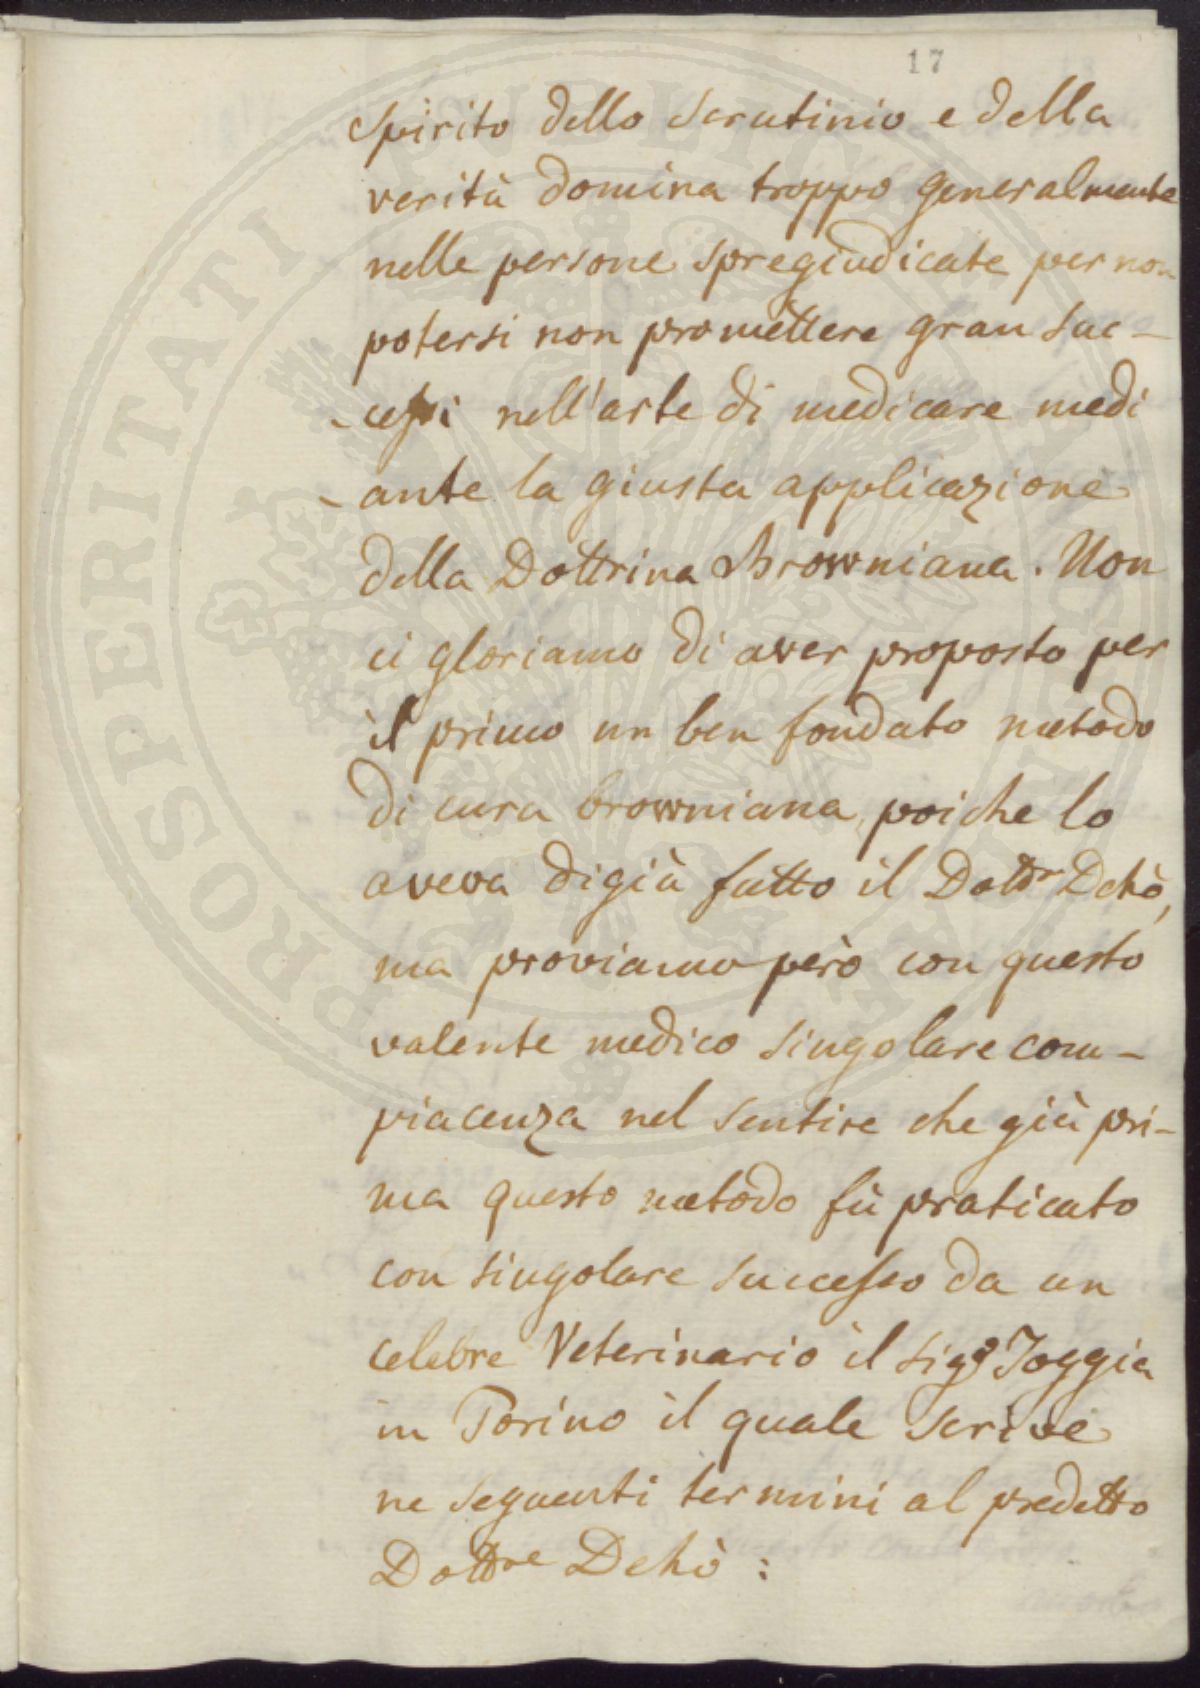 17
spirito dello scrutinio e della
verità domina troppo generalmente
nelle persone spregiudicate per non
potersi non promettere gran suc-
-cessi nell'arte di medicare medi
-ante la giusta applicazione
della Dottrina Browniana. Non
ci gloriamo di aver proposto per
il primo un ben fondato metodo
di cura browniana, poiche lo
aveva digià fatto il Dottr Dehò,
ma proviamo però con questo
valente medico singolare com-
piacenza nel sentire che già pri-
ma questo metodo fù praticato
con singolare successo da un
celebre Veterinario il sigr Toggia
in Torino il quale scrive
ne seguenti termini al predetto
Dottre Dehò:
PUBLICAE
PROSPERITATI